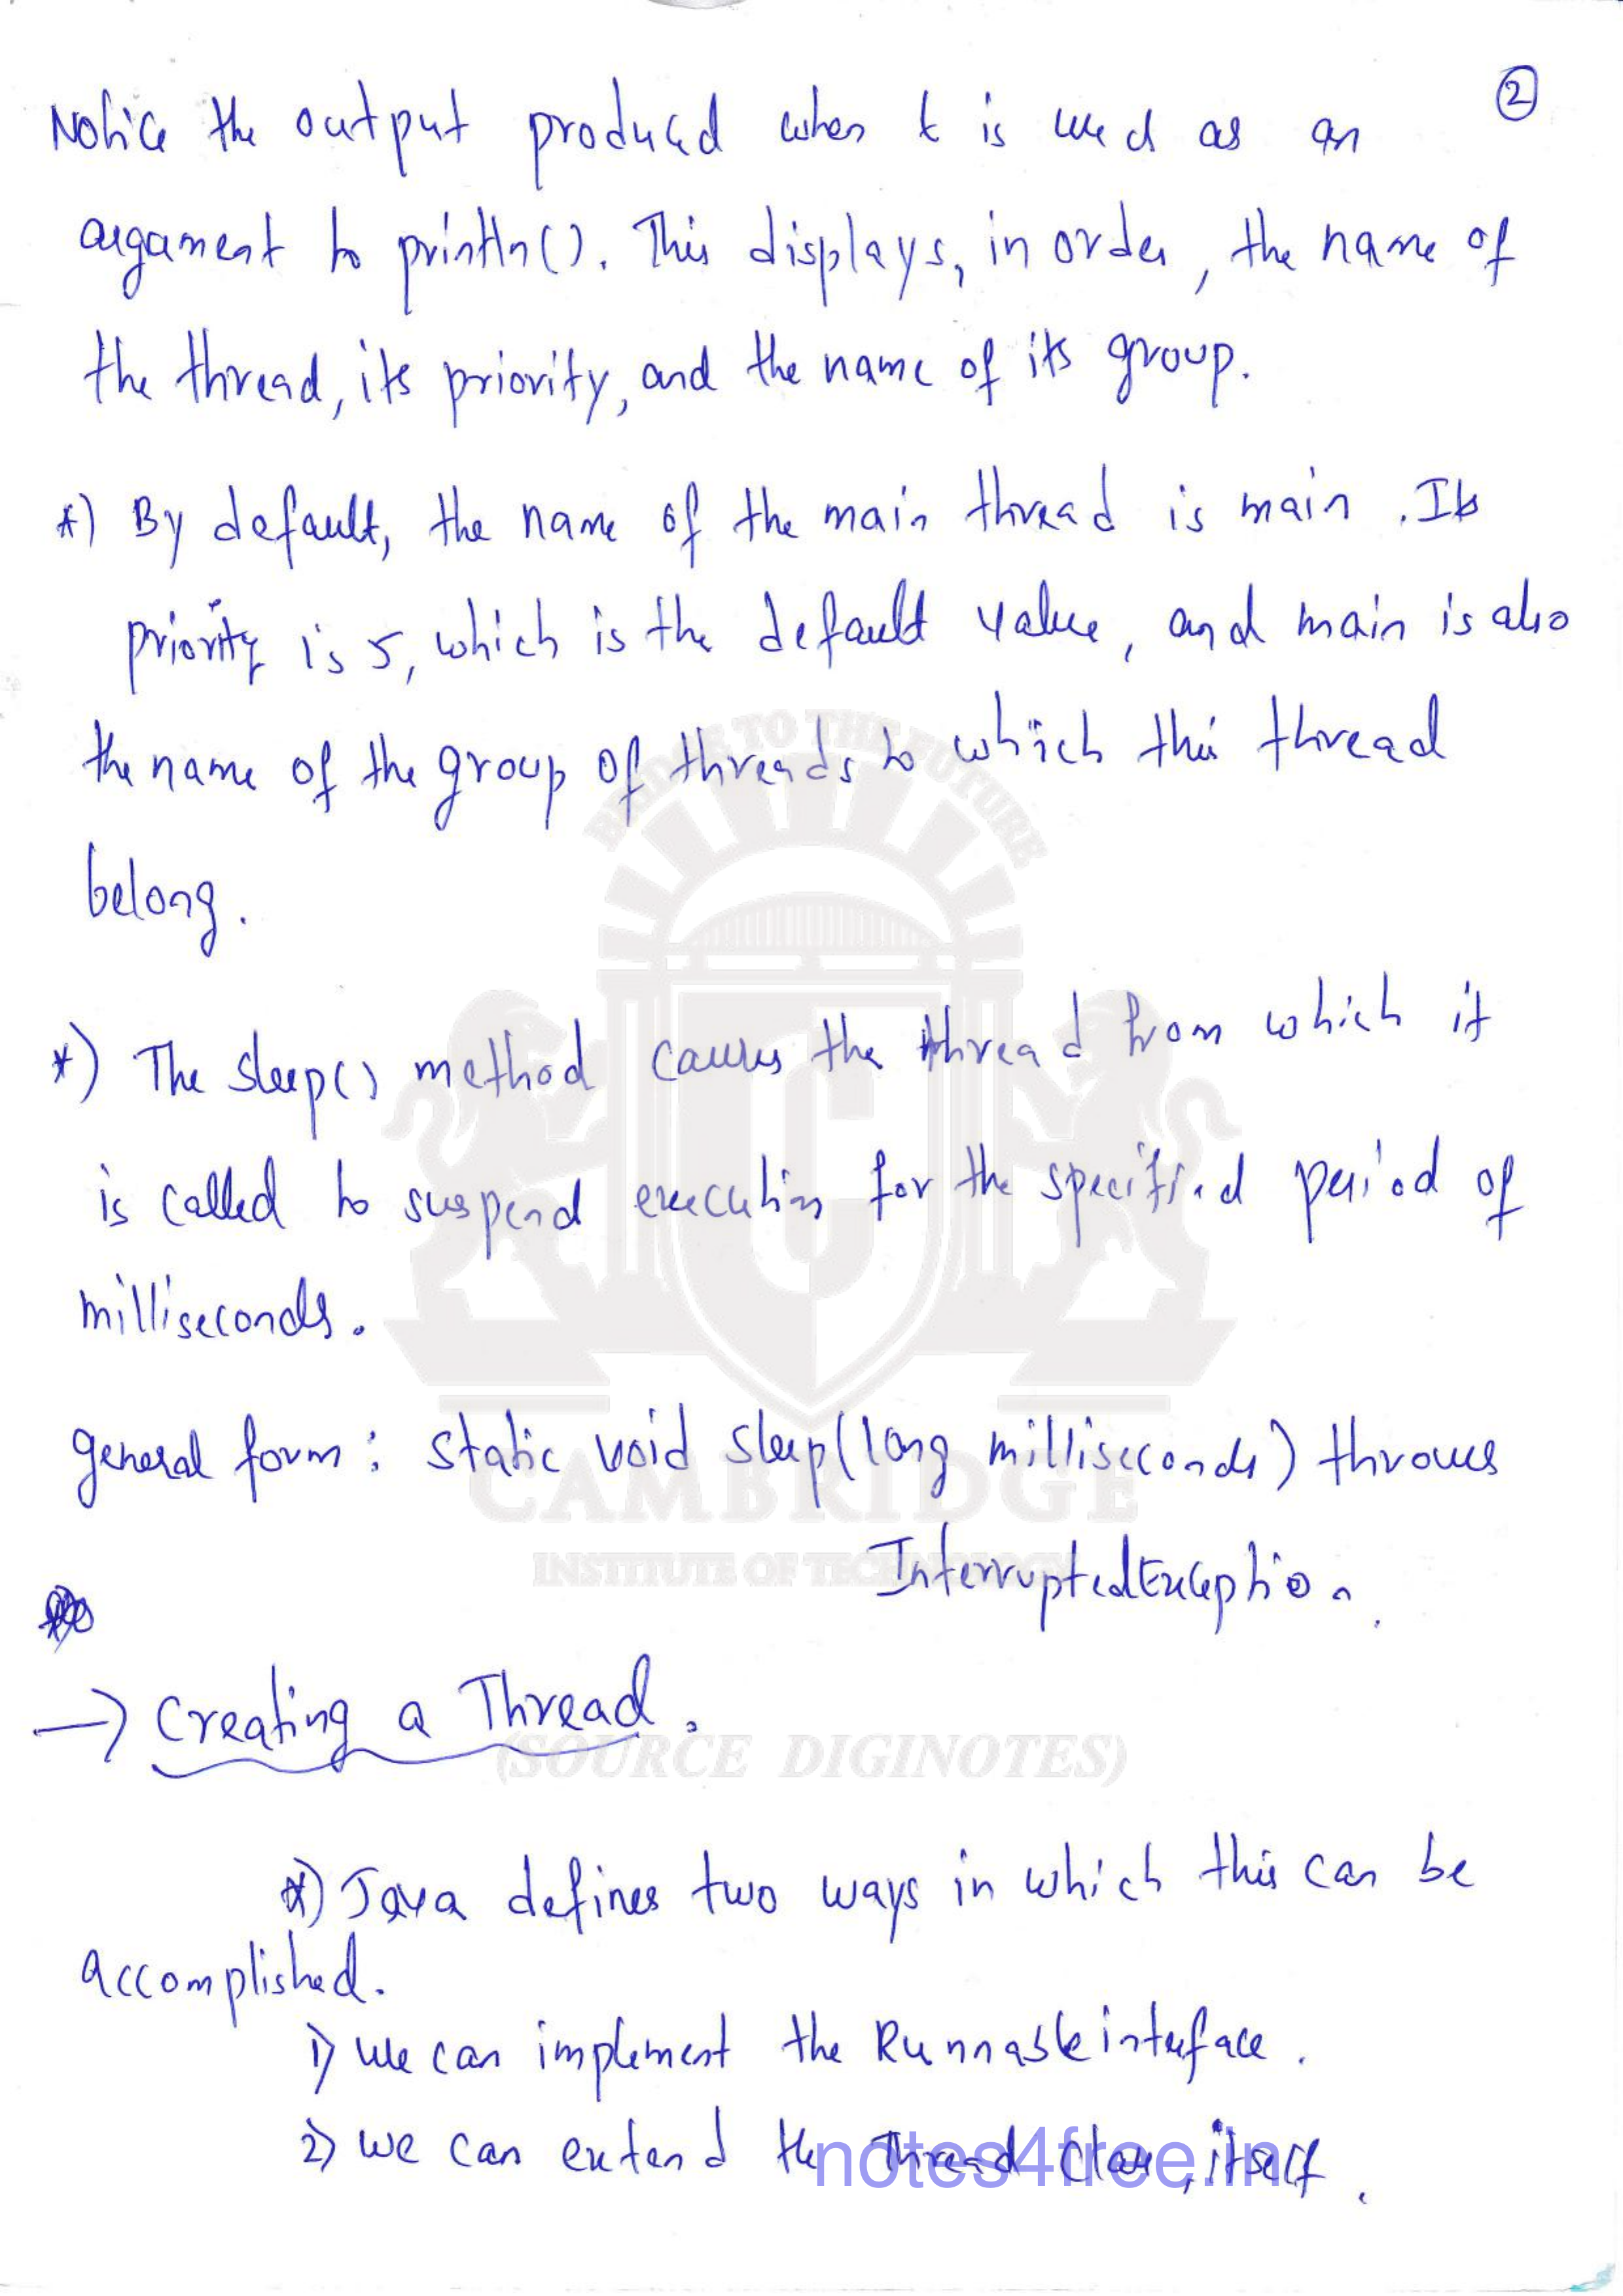 ②
Notice the output produced when t is used as an
argament to println(). This displays, in order, the name of
the thread, its priority, and the name of its group.
*) By default, the name of the main thread is main. Its
priority is 5, which is the default value, and main is also
the name of the group of threads to which this thread
BRIDGE TO THE FUTURE
belong.
*) The sleep() method causes the thread from which it
is called to suspend execution for the specified period of
milliseconds.
general form : static void sleep(long milliseconds) throws
CAMBRIDGE
InterruptedException.
INSTITUTE OF TECHNOLOGY
→ Creating a Thread.
(SOURCE DIGINOTES)
*) Java defines two ways in which this can be
accomplished.
1) we can implement the Runnable interface.
2) we can extend the Thread class, itself.
notes4free.in